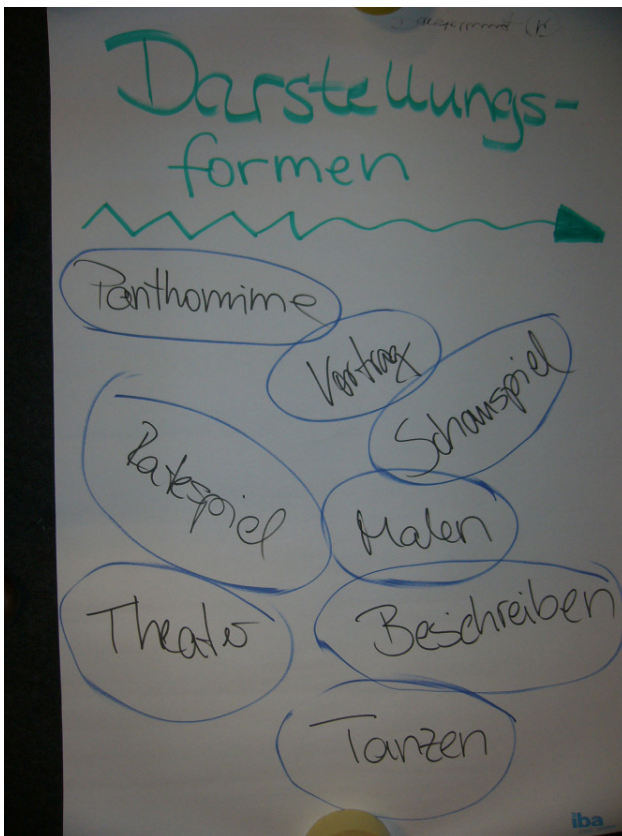 Darstellungs-
formen
Panthomime
Vortrag
Schauspiel
Ratespiel
Malen
Theater
Beschreiben
Tanzen
iba